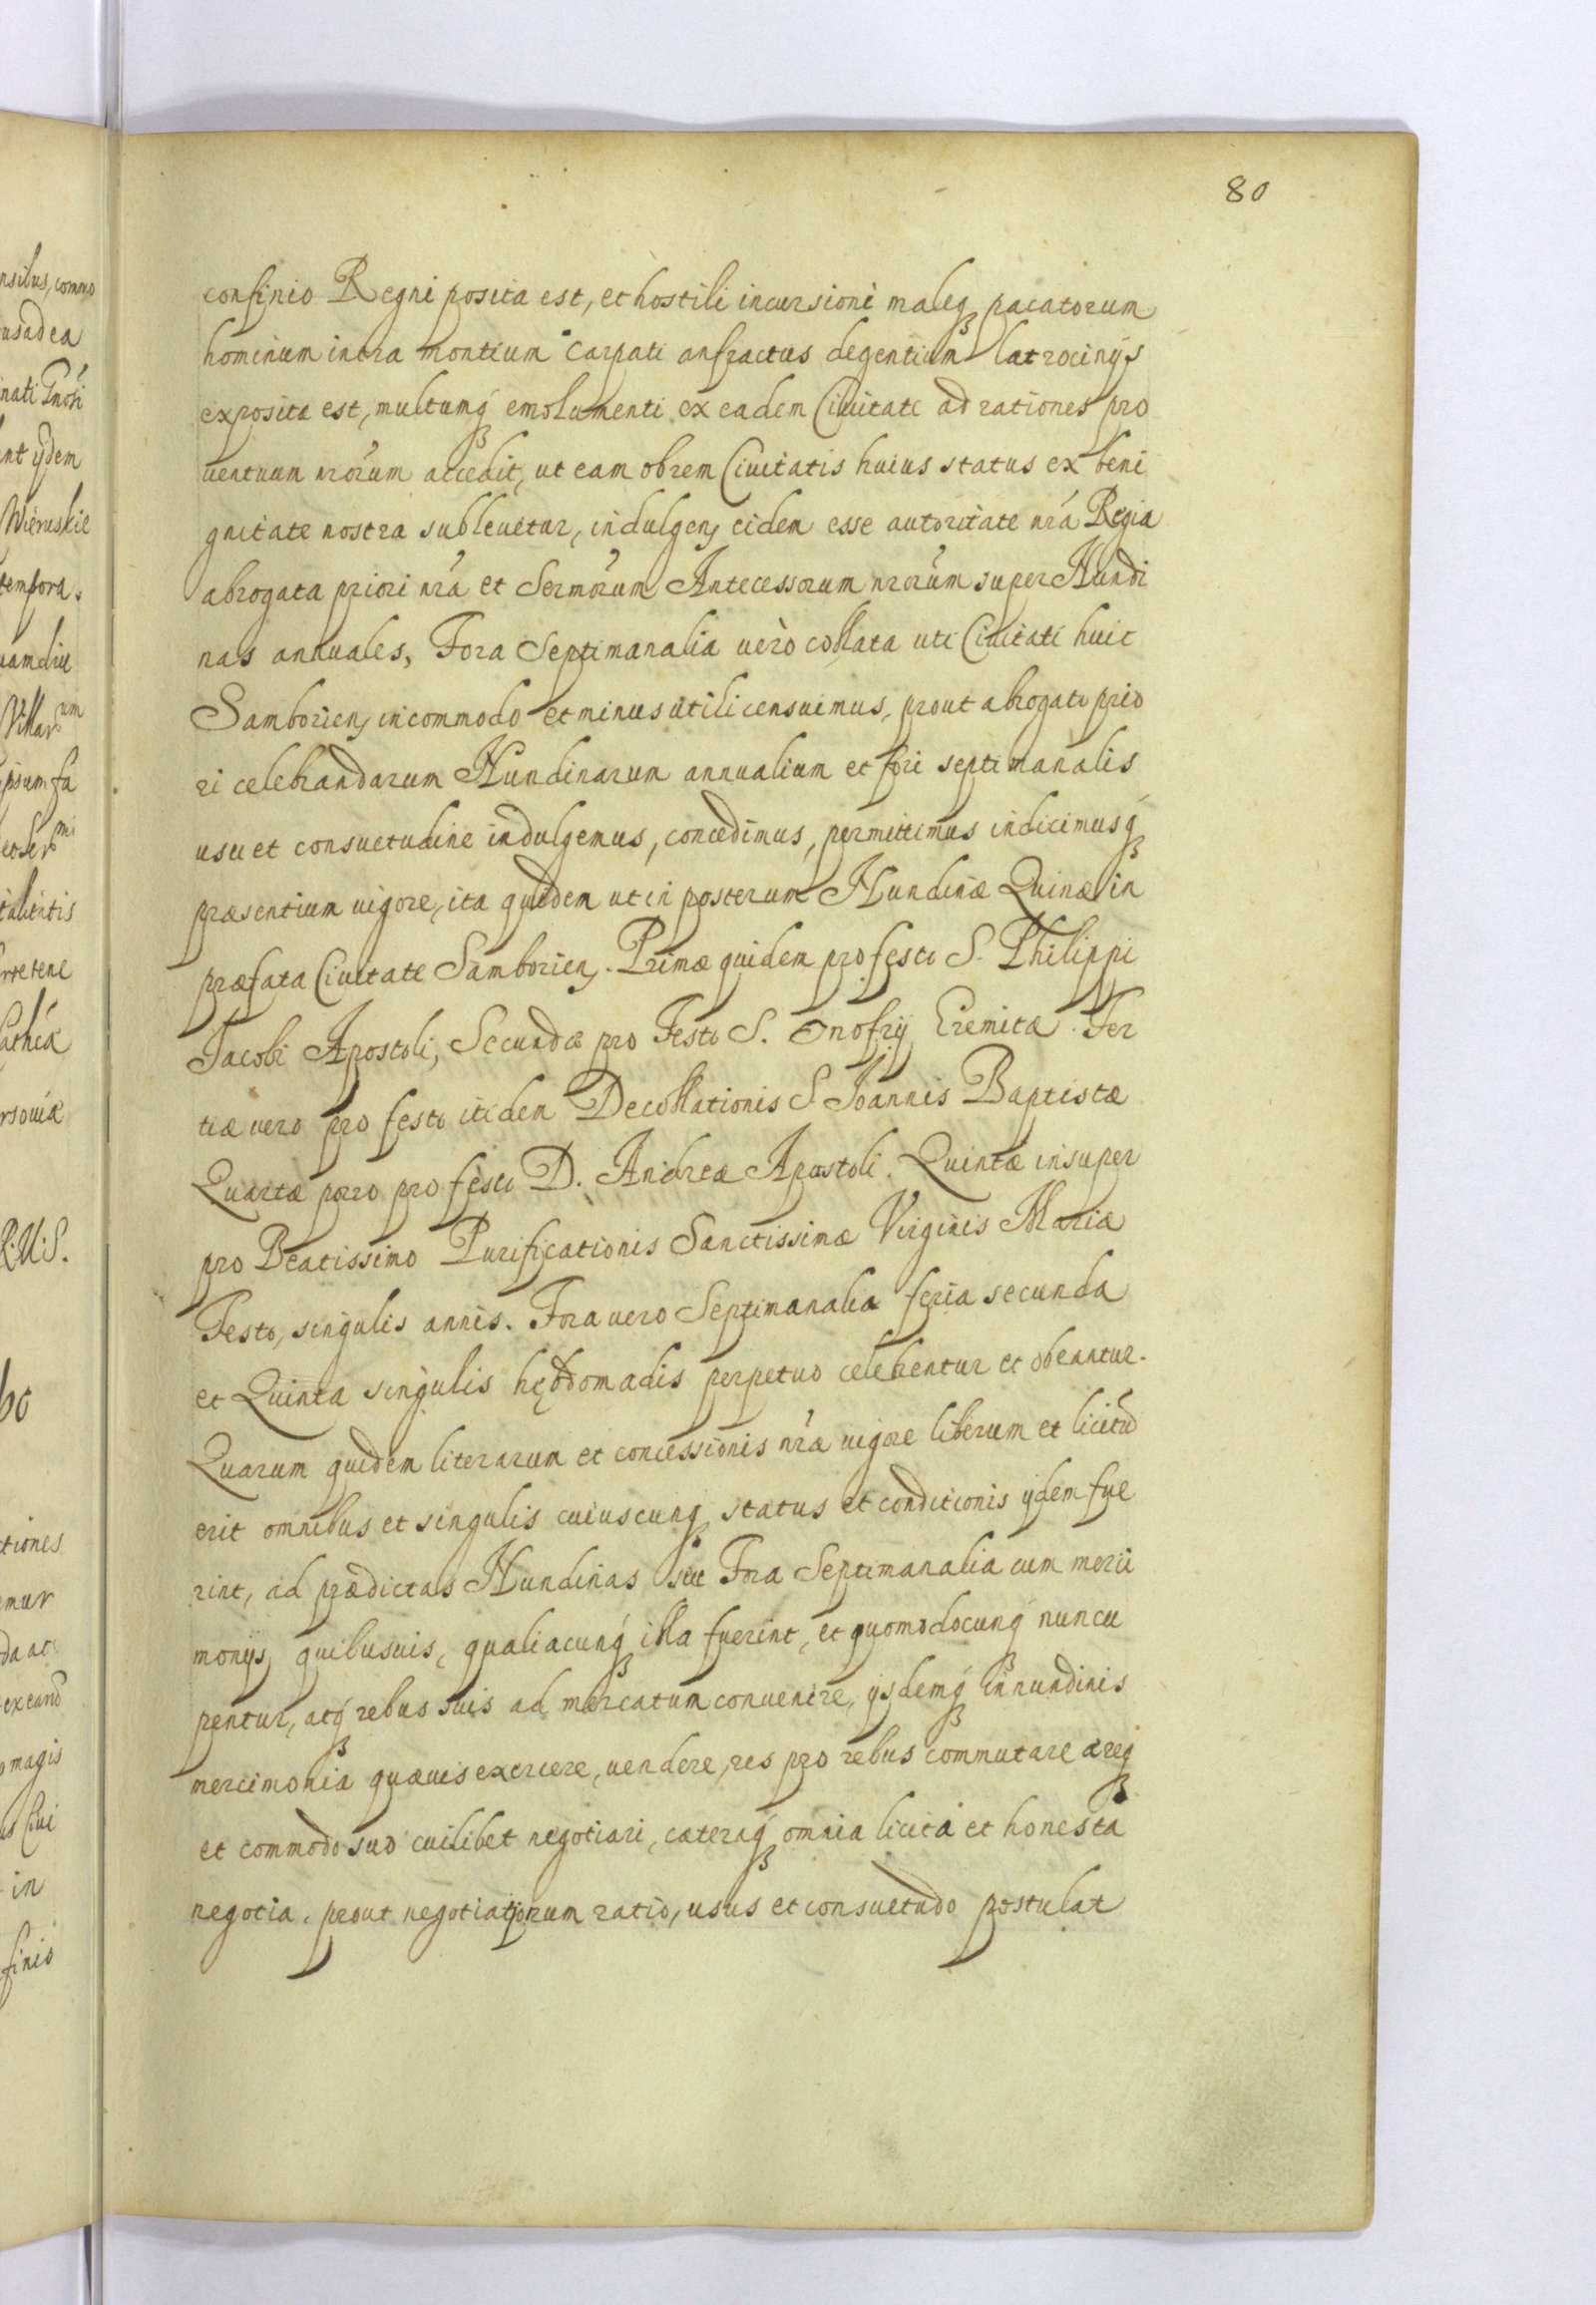 80
confinio Regni posita est, et hostili incursioni maleq₃ pacatorum
hominum intra montium Carpati anfractus degentium latrocinijs
exposita est, multumq₃ emolumenti ex eadem Ciuitate ad rationes pro
uentuum nr̃orum accedit, ut eam obrem Ciuitatis huius status ex beni
gnitate nostra subleuetur, indulgen, eidem esse autoritate nr̃a Regia
abrogata priori nr̃a et Sermõrum Antecessorum nr̃orum super Nundi
nas annuales, Fora Septimanalia uerò collata uti Ciuitati huic
Samborien, incommodo et minus utili censuimus, prout abrogato prio
ri celebrandarum Nundinarum annualium et fori septimanalis
usu et consuetudine indulgemus, concedimus, permittimus indicimusq₃
præsentium uigore, ita quidem ut in posterum Nundinæ Quinæ in
præfata Ciuitate Samborien,. Primæ quidem pro festo S. Philippi
Jacobi Apostoli, Secundæ pro Festo S. Onofrij Eremitæ. Ter
tiæ uero pro festo itidem Decollationis S. Joannis Baptistæ
Quartæ porro pro festo D. Andreæ Apostoli. Quintæ insuper
pro Beatissimo Purificationis Sanctissimæ Virginis Mariæ
Festo, singulis annis. Fora uero Septimanalia feria secunda
et Quinta singulis hebdomadis perpetuo celebentur et obeantur.
Quarum quidem literarum et concessionis nr̃æ uigore liberum et licitũ
erit omnibus et singulis cuiuscunq₃ status et conditionis ijdem fue
rint, ad prædictas Nundinas siue Fora Septimanalia cum merci
monijs quibusuis, qualiacunq₃ illa fuerint, et quomodocunq₃ nuncu
pentur, atq₃ rebus suis ad mercatum conuenire, ijsdemq₃ in nundinis
mercimonia quæuis exercere, uendere, res pro rebus commutare a req₃
et commodo suo cuilibet negotiari, cæteraq₃ omnia licita et honesta
negotia, prout negotiatorum ratio, usus et consuetudo postulat